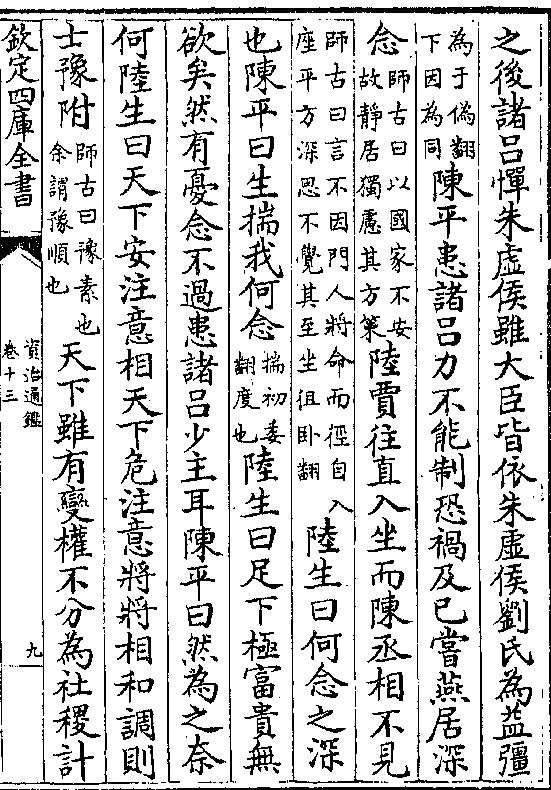 之後諸呂憚朱虛侯雖大臣皆依朱虛侯劉氏為益彊
為于偽翻
下因為同
陳平患諸呂力不能制恐禍及己嘗燕居深
念
師古曰以國家不安
故靜居獨慮其方策
陸賈往直入坐而陳丞相不見
師古曰言不因門人將命而徑自入
座平方深思不覺其至坐徂卧翻
陸生曰何念之深
也陳平曰生揣我何念
揣初委
翻度也
陸生曰足下極富貴無
欲矣然有憂念不過患諸呂少主耳陳平曰然為之奈
何陸生曰天下安注意相天下危注意將將相和調則
士豫附
師古曰豫素也
余謂豫順也
天下雖有變權不分為社稷計
欽定四庫全書
資治通鑑
卷十三
九